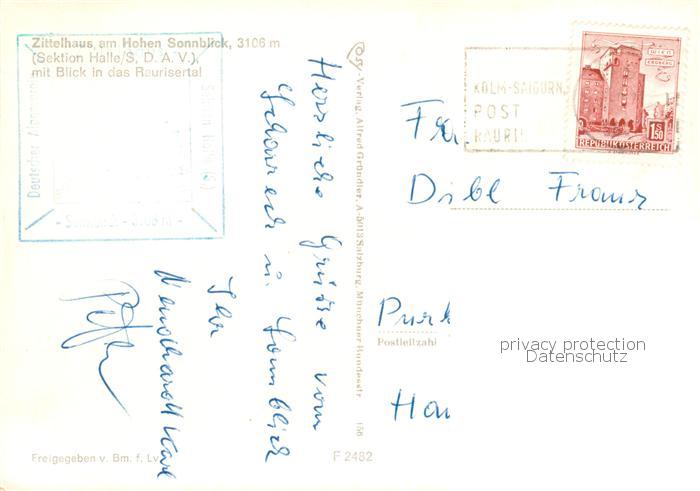 Zittelhaus am Hohen Sonnblick, 3106 m
(Sektion Halle/S, D. A. V.),
mit Blick in das Raurisertal
Deutscher
- 3106 m -
Herzliche Grüsse vom
Schareck u. Sonnblick
Ihr
Karl
Cosy-Verlag, Alfred Gründler, A-5013 Salzburg, Münchner Bundesstr. 156
KOLM-SAIGURN
POST
RAURI
WIEN
ERDBERG
1 S 50
REPUBLIK ÖSTERREICH
Fra
Dibl Franz
Purk
Postleitzahl
privacy protection
Datenschutz
Hau
Freigegeben v. Bm. f. Lv.
F 2482